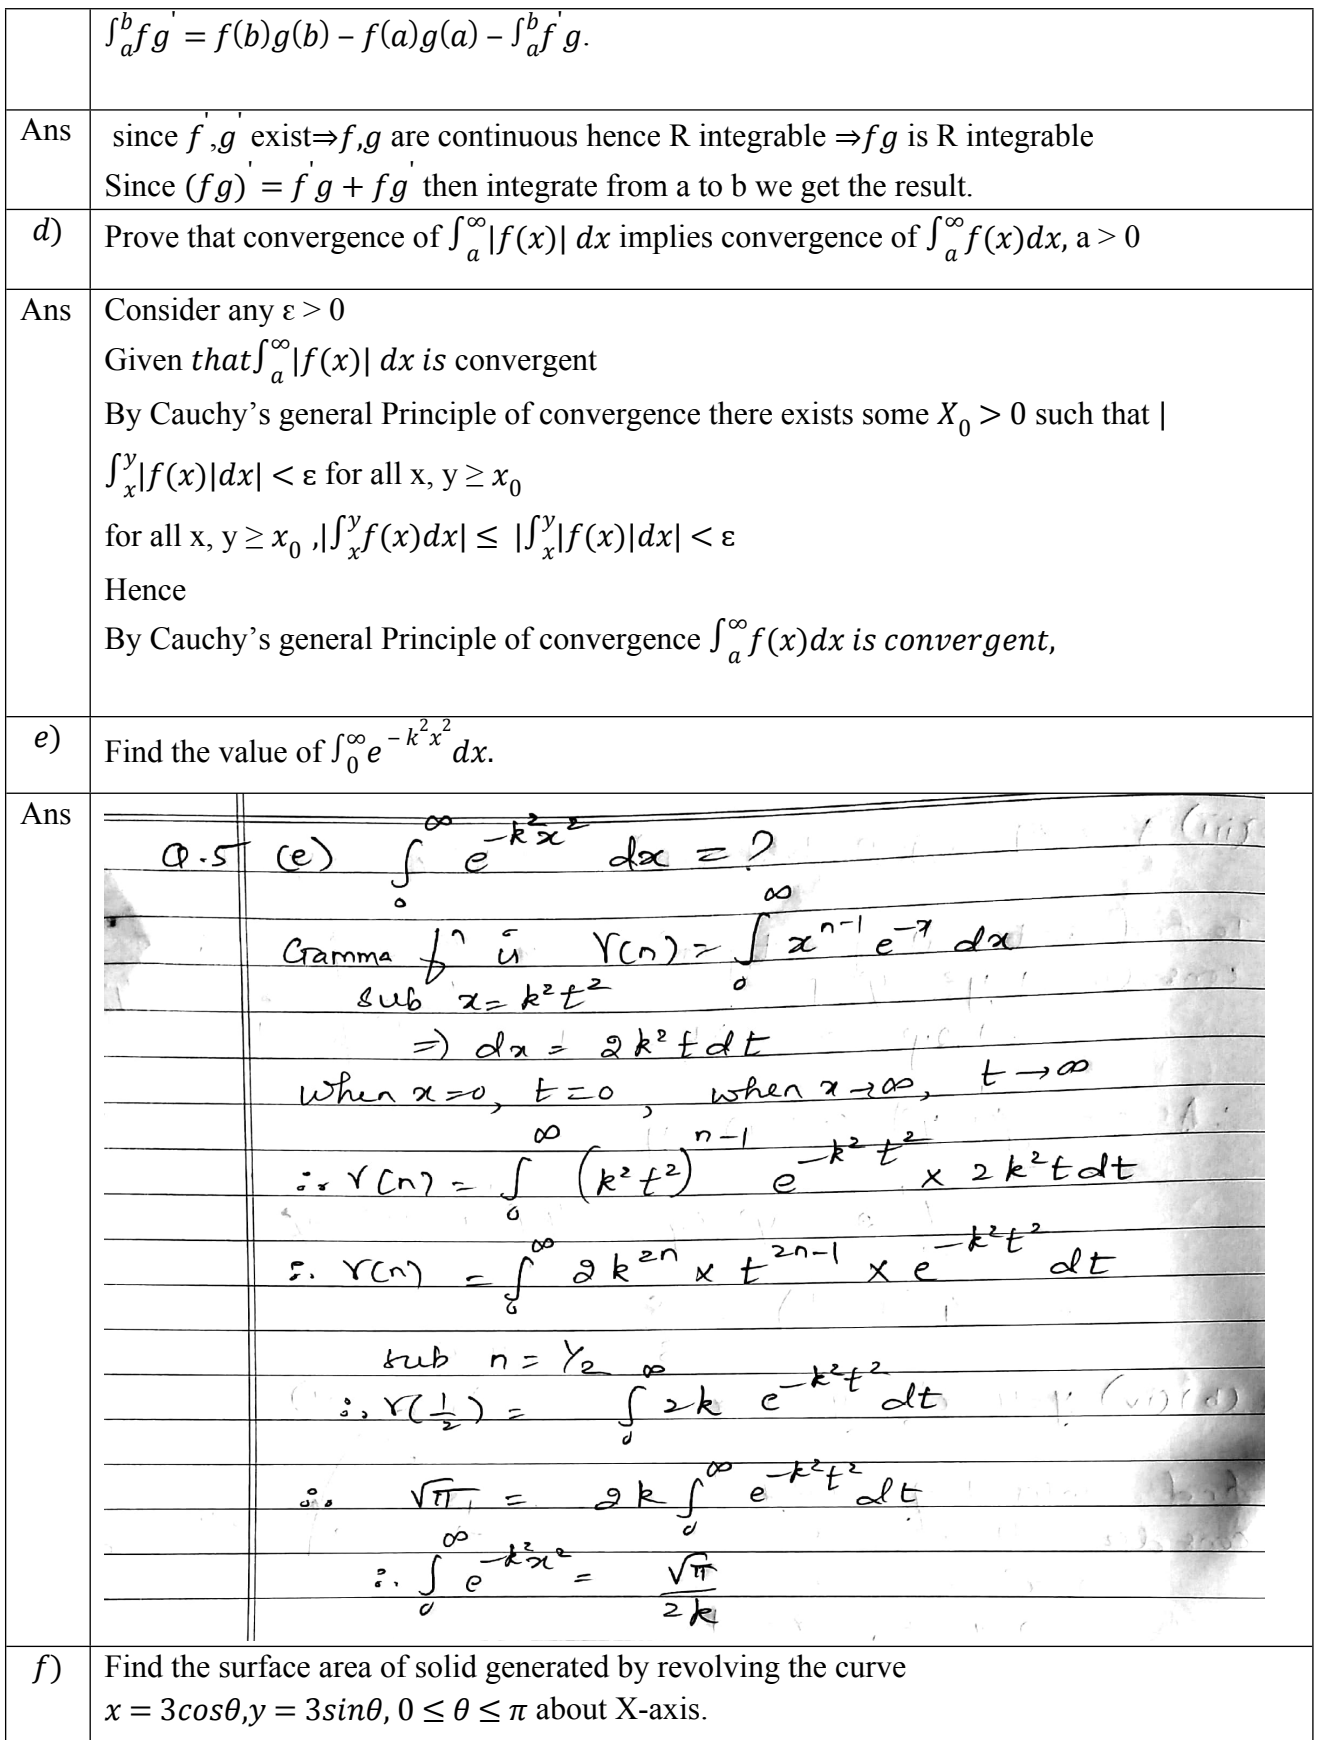 ∫ₐᵇfg' = f(b)g(b) – f(a)g(a) – ∫ₐᵇf'g.
Ans since f',g' exist⇒f,g are continuous hence R integrable ⇒fg is R integrable
Since (fg)' = f'g + fg' then integrate from a to b we get the result.
d) Prove that convergence of ∫ₐ^∞|f(x)| dx implies convergence of ∫ₐ^∞f(x)dx, a > 0
Ans Consider any ε > 0
Given that∫ₐ^∞|f(x)| dx is convergent
By Cauchy's general Principle of convergence there exists some X₀ > 0 such that |
∫ₓ^y|f(x)|dx| < ε for all x, y ≥ x₀
for all x, y ≥ x₀ ,|∫ₓ^yf(x)dx| ≤ |∫ₓ^y|f(x)|dx| < ε
Hence
By Cauchy's general Principle of convergence ∫ₐ^∞f(x)dx is convergent,
e) Find the value of ∫₀^∞e^(–k²x²)dx.
Ans
Q.5 (e) ∫₀^∞ e^(-k²x²) dx = ?
Gamma fⁿ is γ(n) = ∫₀^∞ x^(n-1) e^(-x) dx
sub x = k²t²
⇒ dx = 2k²t dt
When x=0, t=0, when x→∞, t→∞
∴ γ(n) = ∫₀^∞ (k²t²)^(n-1) e^(-k²t²) × 2k²t dt
∴ γ(n) = ∫₀^∞ 2k^(2n) × t^(2n-1) × e^(-k²t²) dt
sub n = ½
∴ γ(1/2) = ∫₀^∞ 2k e^(-k²t²) dt
∴ √π = 2k ∫₀^∞ e^(-k²t²) dt
∴ ∫₀^∞ e^(-k²x²) = √π / 2k
f) Find the surface area of solid generated by revolving the curve
x = 3cosθ,y = 3sinθ, 0 ≤ θ ≤ π about X-axis.